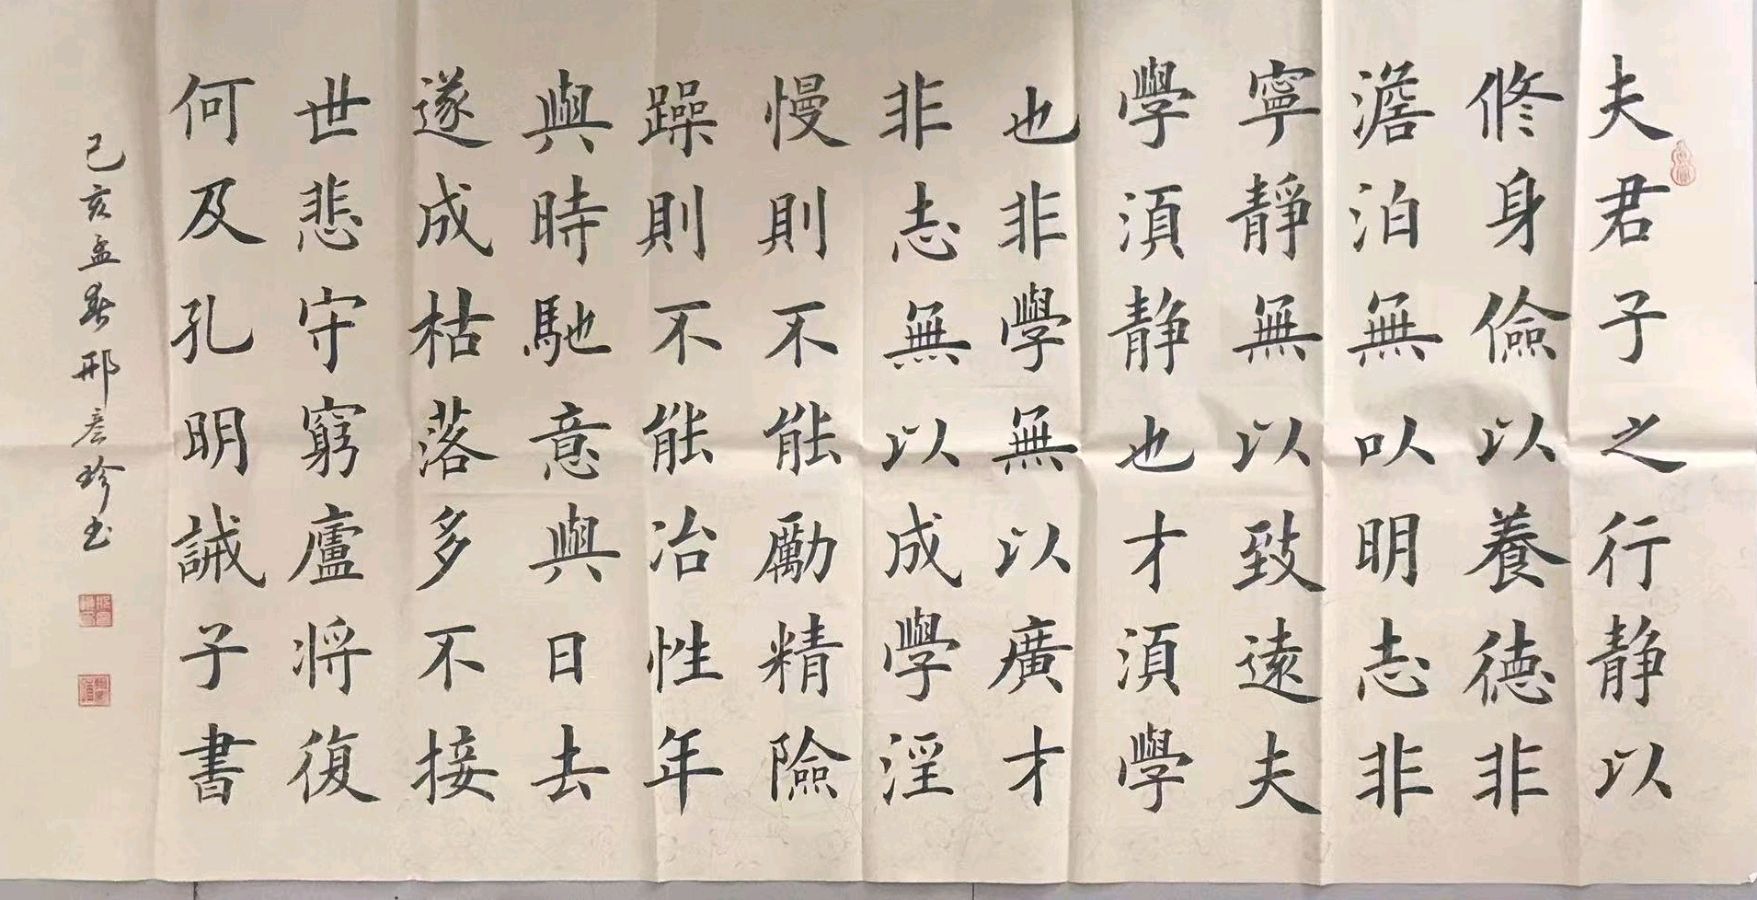 夫君子之行静以
修身儉以養德非
澹泊無以明志非
寧靜無以致遠夫
學須静也才須學
也非學無以廣才
非志無以成學淫
慢則不能勵精險
躁則不能冶性年
與時馳意與日去
遂成枯落多不接
世悲守窮廬将復
何及孔明誡子書
己亥孟春邢彦珍书